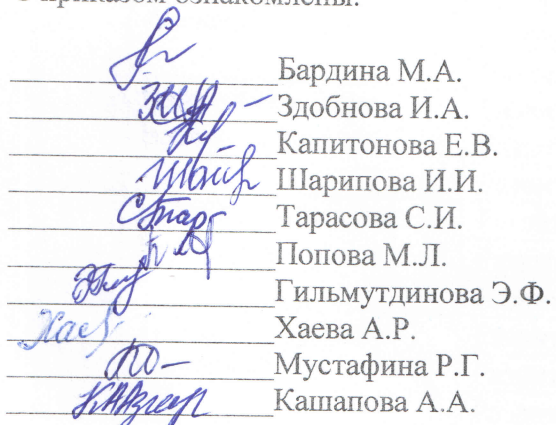 С приказом ознакомлены:
Бардина М.А.
Здобнова И.А.
Капитонова Е.В.
Шарипова И.И.
Тарасова С.И.
Попова М.Л.
Гильмутдинова Э.Ф.
Хаева А.Р.
Мустафина Р.Г.
Кашапова А.А.